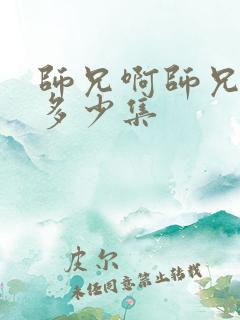 師兄啊師兄
多少集
皮尔
未经同意禁止转载